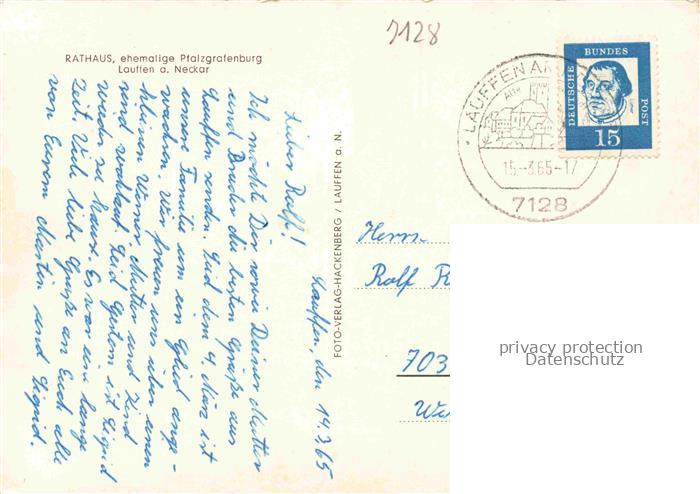 7128
RATHAUS, ehemalige Pfalzgrafenburg
Lauffen a. Neckar
LAUFFEN AM
15.-3.65-17
7128
DEUTSCHE
BUNDES
POST
15
FOTO-VERLAG-HACKENBERG / LAUFFEN a. N.
Lauffen, den 14.3.65
Lieber Rolf!
Ich möchte Dir sowie Deiner Mutter
und Bruder die besten Grüße aus
Lauffen senden. Seid dem 4. März ist
unsere Familie um ein Glied ange-
wachsen. Wir freuen uns über einen
kleinen Werner. Mutter und Kind
sind wohlauf. Seid Gestern ist Sigrid
wieder zu Haus. Es war eine lange
Zeit. Viele liebe Grüße an Euch alle
von Eurem Martin und Sigrid.
Herrn
Rolf
703
privacy protection
Datenschutz